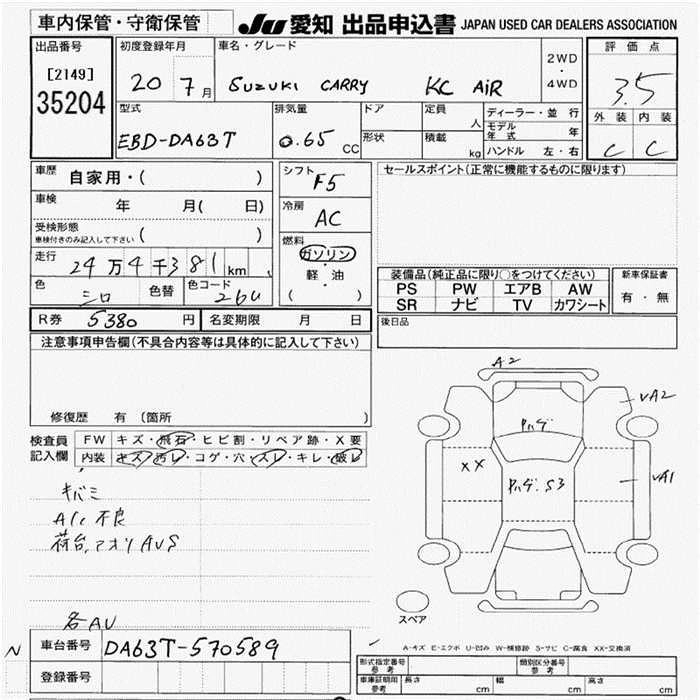 車内保管・守衛保管
JU 愛知 出品申込書 JAPAN USED CAR DEALERS ASSOCIATION
出品番号
[2149]
35204
初度登録年月
20 7月
車名・グレード
SUZUKI CARRY KC AiR
2WD
・
4WD
評価点
3.5
外装 内装
C C
型式
EBD-DA63T
排気量
0.65 CC
ドア
形状
定員
人
積載
kg
ディーラー・並行
モデル年式 年
ハンドル 左・右
車歴
自家用・( )
車検
年 月( 日)
受検形態
車検付きのみ記入して下さい ( )
走行
24万4千381km
色
シロ
色替
色コード
26U
シフト
F5
冷房
AC
燃料
ガソリン
・
軽・油
( )
R券 5380 円
名変期限 月 日
セールスポイント(正常に機能するものに限ります)
装備品(純正品に限り○をつけてください)
PS PW エアB AW
SR ナビ TV カワシート
新車保証書
有・無
後日品
注意事項申告欄(不具合内容等は具体的に記入して下さい)
修復歴 有 (箇所 )
検査員
記入欄
FW キズ・飛石・ヒビ割・リペア跡・X要
内装 キズ・汚レ・コゲ・穴・スレ・キレ・破レ
キバミ
A/C 不良
荷台,アオリ AUS
各AU
A2
VA2
ハゲ
XX
ハゲ.S3
VA1
スペア
N
車台番号 DA63T-570589
登録番号
A-キズ E-エクボ U-凹み W-補修跡 S-サビ C-腐食 XX-交換済
型式指定番号
参考
類別区分番号
参考
車庫証明用
参考
長さ cm 幅 cm 高さ cm